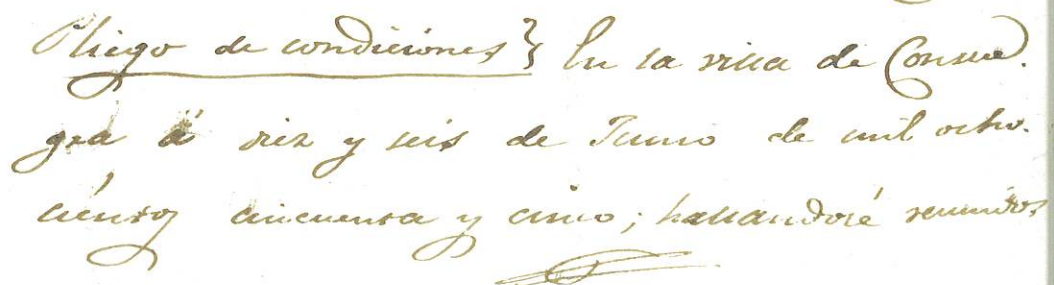 Pliego de condiciones} En la villa de Consue.
gra á diez y seis de Junio de mil ocho.
cientos cincuenta y cinco; hallandosé reunidos